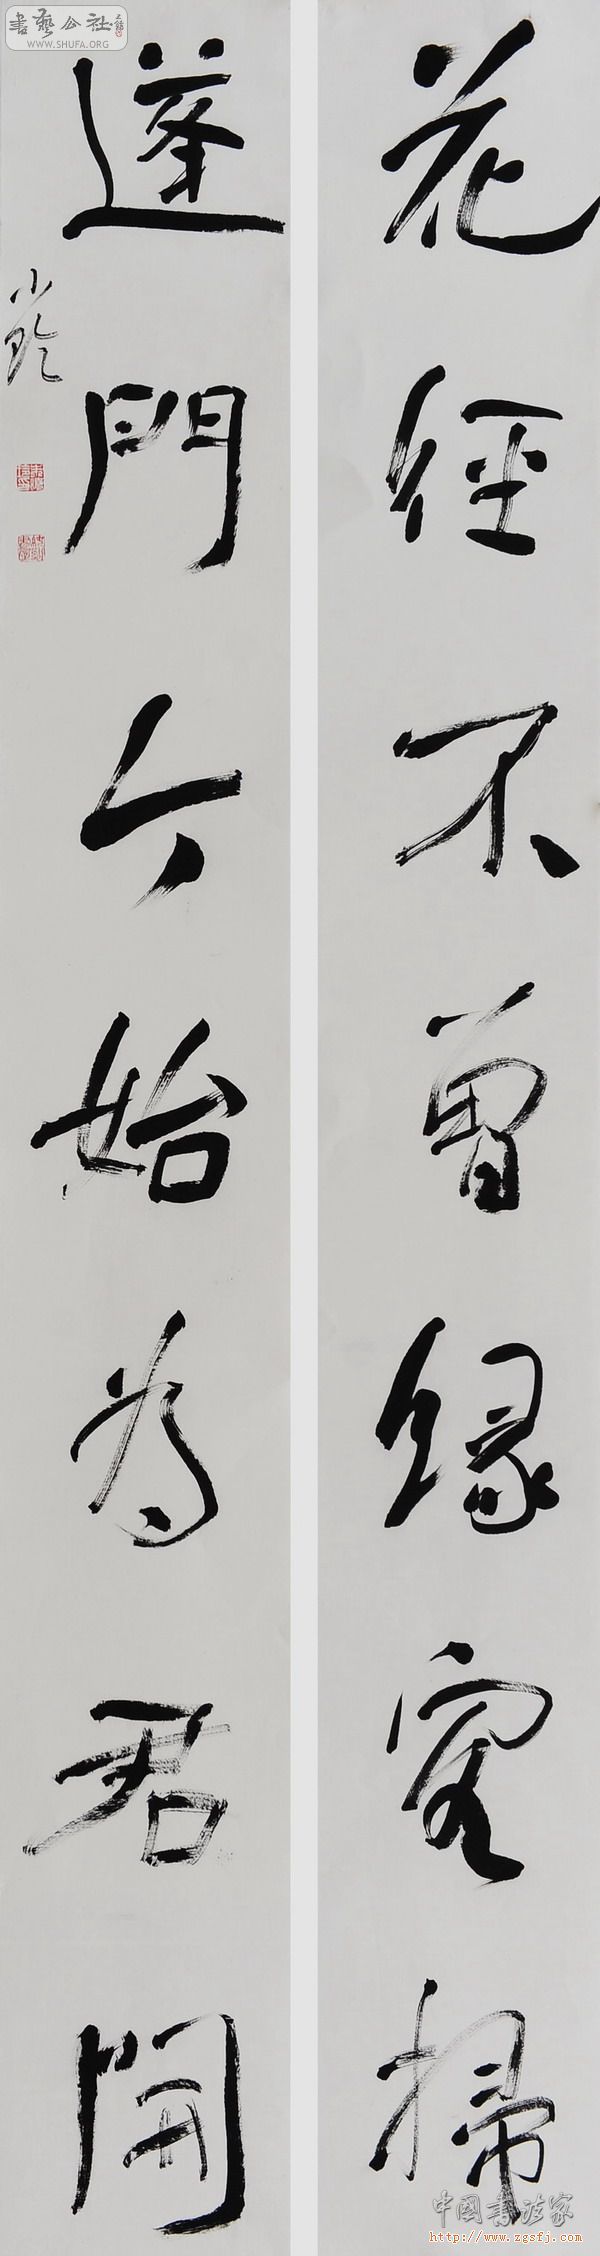 花徑不曾緣客掃
蓬門今始為君開
小
書藝公社
WWW.SHUFA.ORG
中國書法家
http://www.zgsfj.com